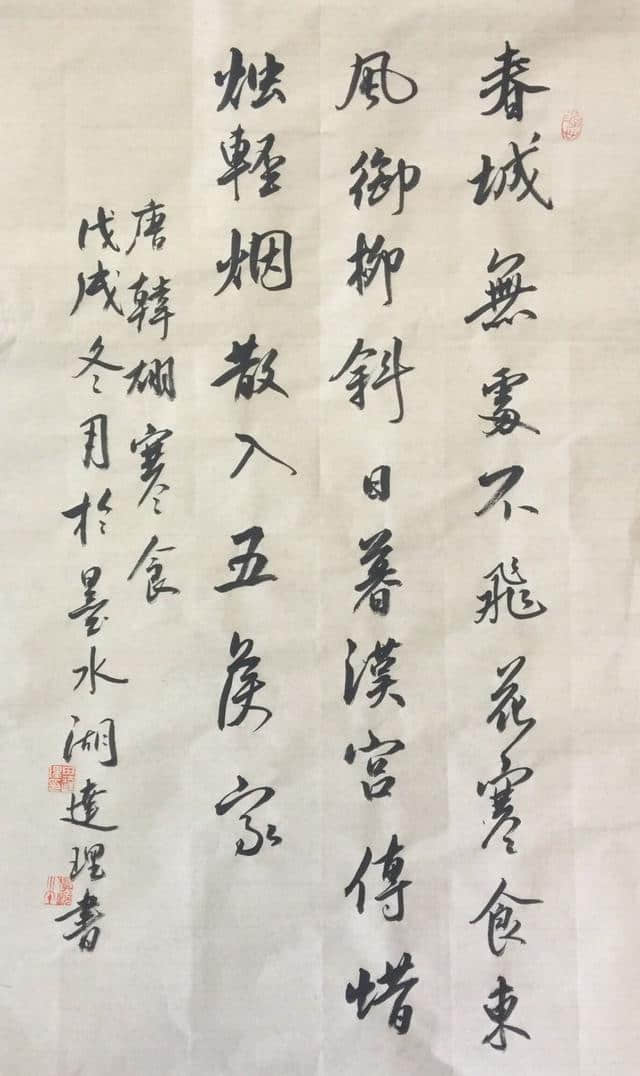 春城無處不飛花寒食東
風御柳斜日暮漢宮傳焟
烛輕烟散入五侯家
唐韓翃寒食
戊戌冬月於墨水湖達理書